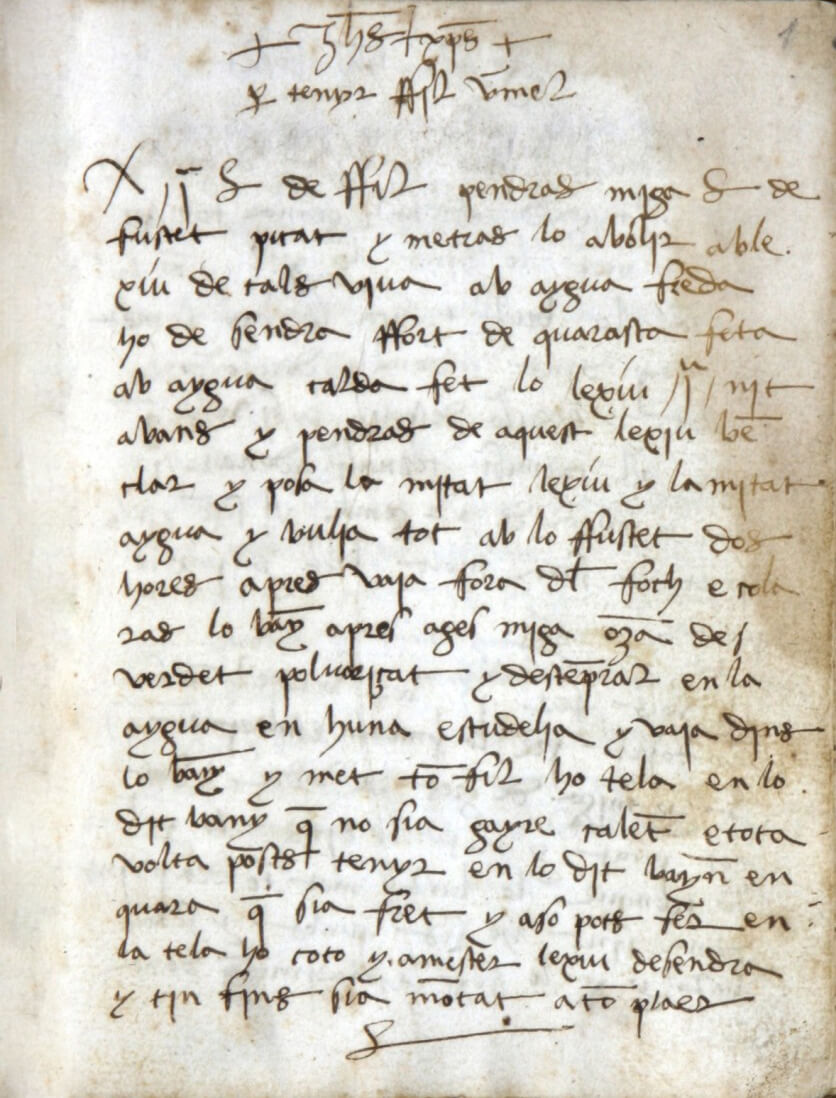 + Jhs + xps +
per tenyr ffil vmel
X jª ll de ffil pendras miga ll de
fustet picat y metras lo abolir ab le
xiu de cals viva ab aygua freda
ho de sendra ffort de quarasca feta
ab aygua calda fet lo lexiu jª nit
abans y pendras de aquest lexiu be
clar y posa la mitat lexiu y la mitat
aygua y bulia tot ab lo ffustet dos
hores apres vaja fora dl foch e cola
ras lo bay apres ages miga oza de
verdet polvorizat y destepràt en la
aygua en huna escudelia y vaja dins
lo bany y met to fil ho tela en lo
dit bany q no sia gayre calet e tota
volta posts tenyr en lo dit bayn en
quara q sia fret y aso pots fer en
la tela ho coto y amester lexiu de sendra
y tin fins sia motat a to plaer